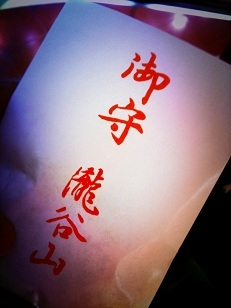 御守
瀧谷山